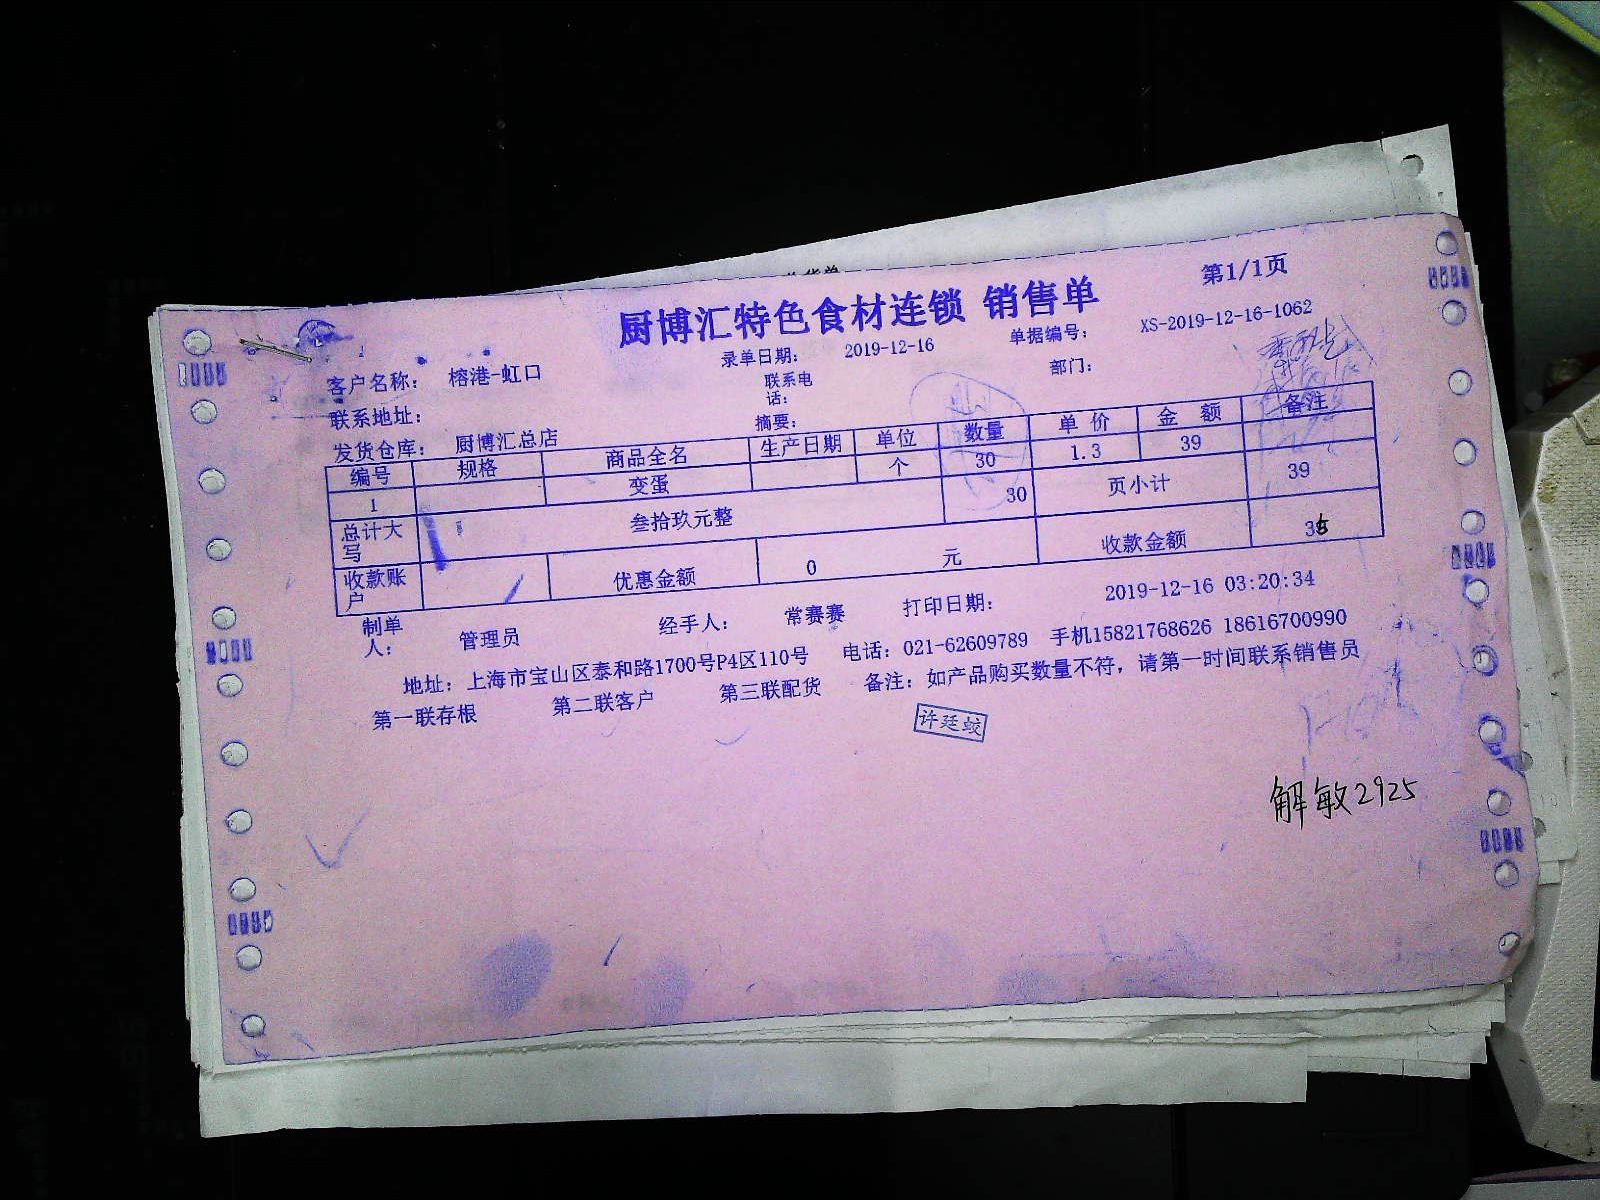 厨博汇特色食材连锁 销售单
第1/1页
客户名称： 榕港-虹口 录单日期： 2019-12-16 单据编号： XS-2019-12-16-1062
联系地址： 联系电话： 部门：
发货仓库： 厨博汇总店 摘要：
编号 规格 商品全名 生产日期 单位 数量 单 价 金 额 备注
1 变蛋 个 30 1.3 39
总计大写 叁拾玖元整 30 页小计 39
收款账户 优惠金额 0 元 收款金额
制单人： 管理员 经手人： 常赛赛 打印日期： 2019-12-16 03:20:34
地址：上海市宝山区泰和路1700号P4区110号 电话：021-62609789 手机15821768626 18616700990
第一联存根 第二联客户 第三联配货 备注：如产品购买数量不符，请第一时间联系销售员
许廷蛟
解敏2925